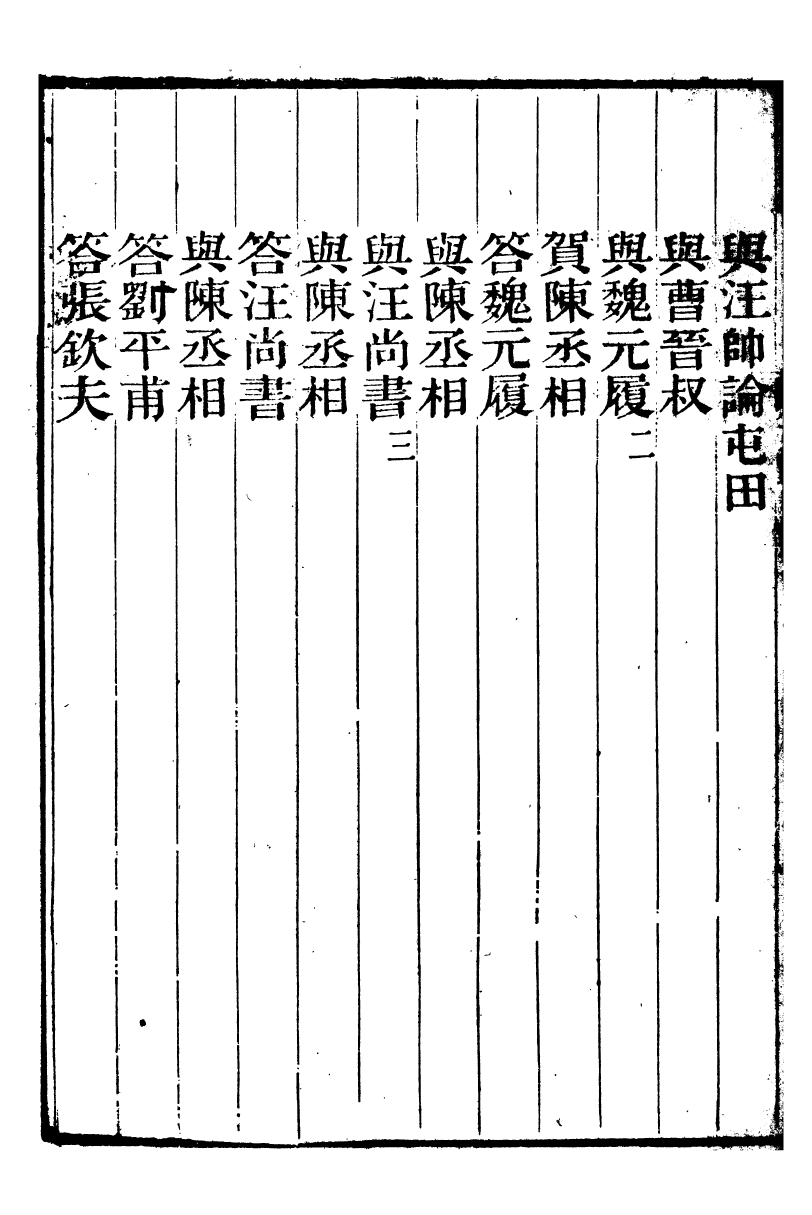 與汪帥論屯田
與曹晉叔
與魏元履二
賀陳丞相
答魏元履
與陳丞相
與汪尚書三
與陳丞相
答汪尚書
與陳丞相
答劉平甫
答張欽夫